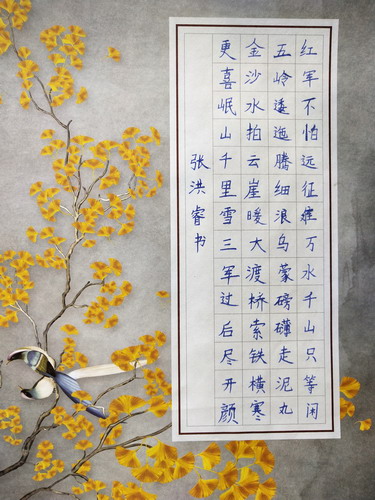 红军不怕远征难万水千山只等闲
五岭逶迤腾细浪乌蒙磅礴走泥丸
金沙水拍云崖暖大渡桥索铁横寒
更喜岷山千里雪三军过后尽开颜
张洪睿书